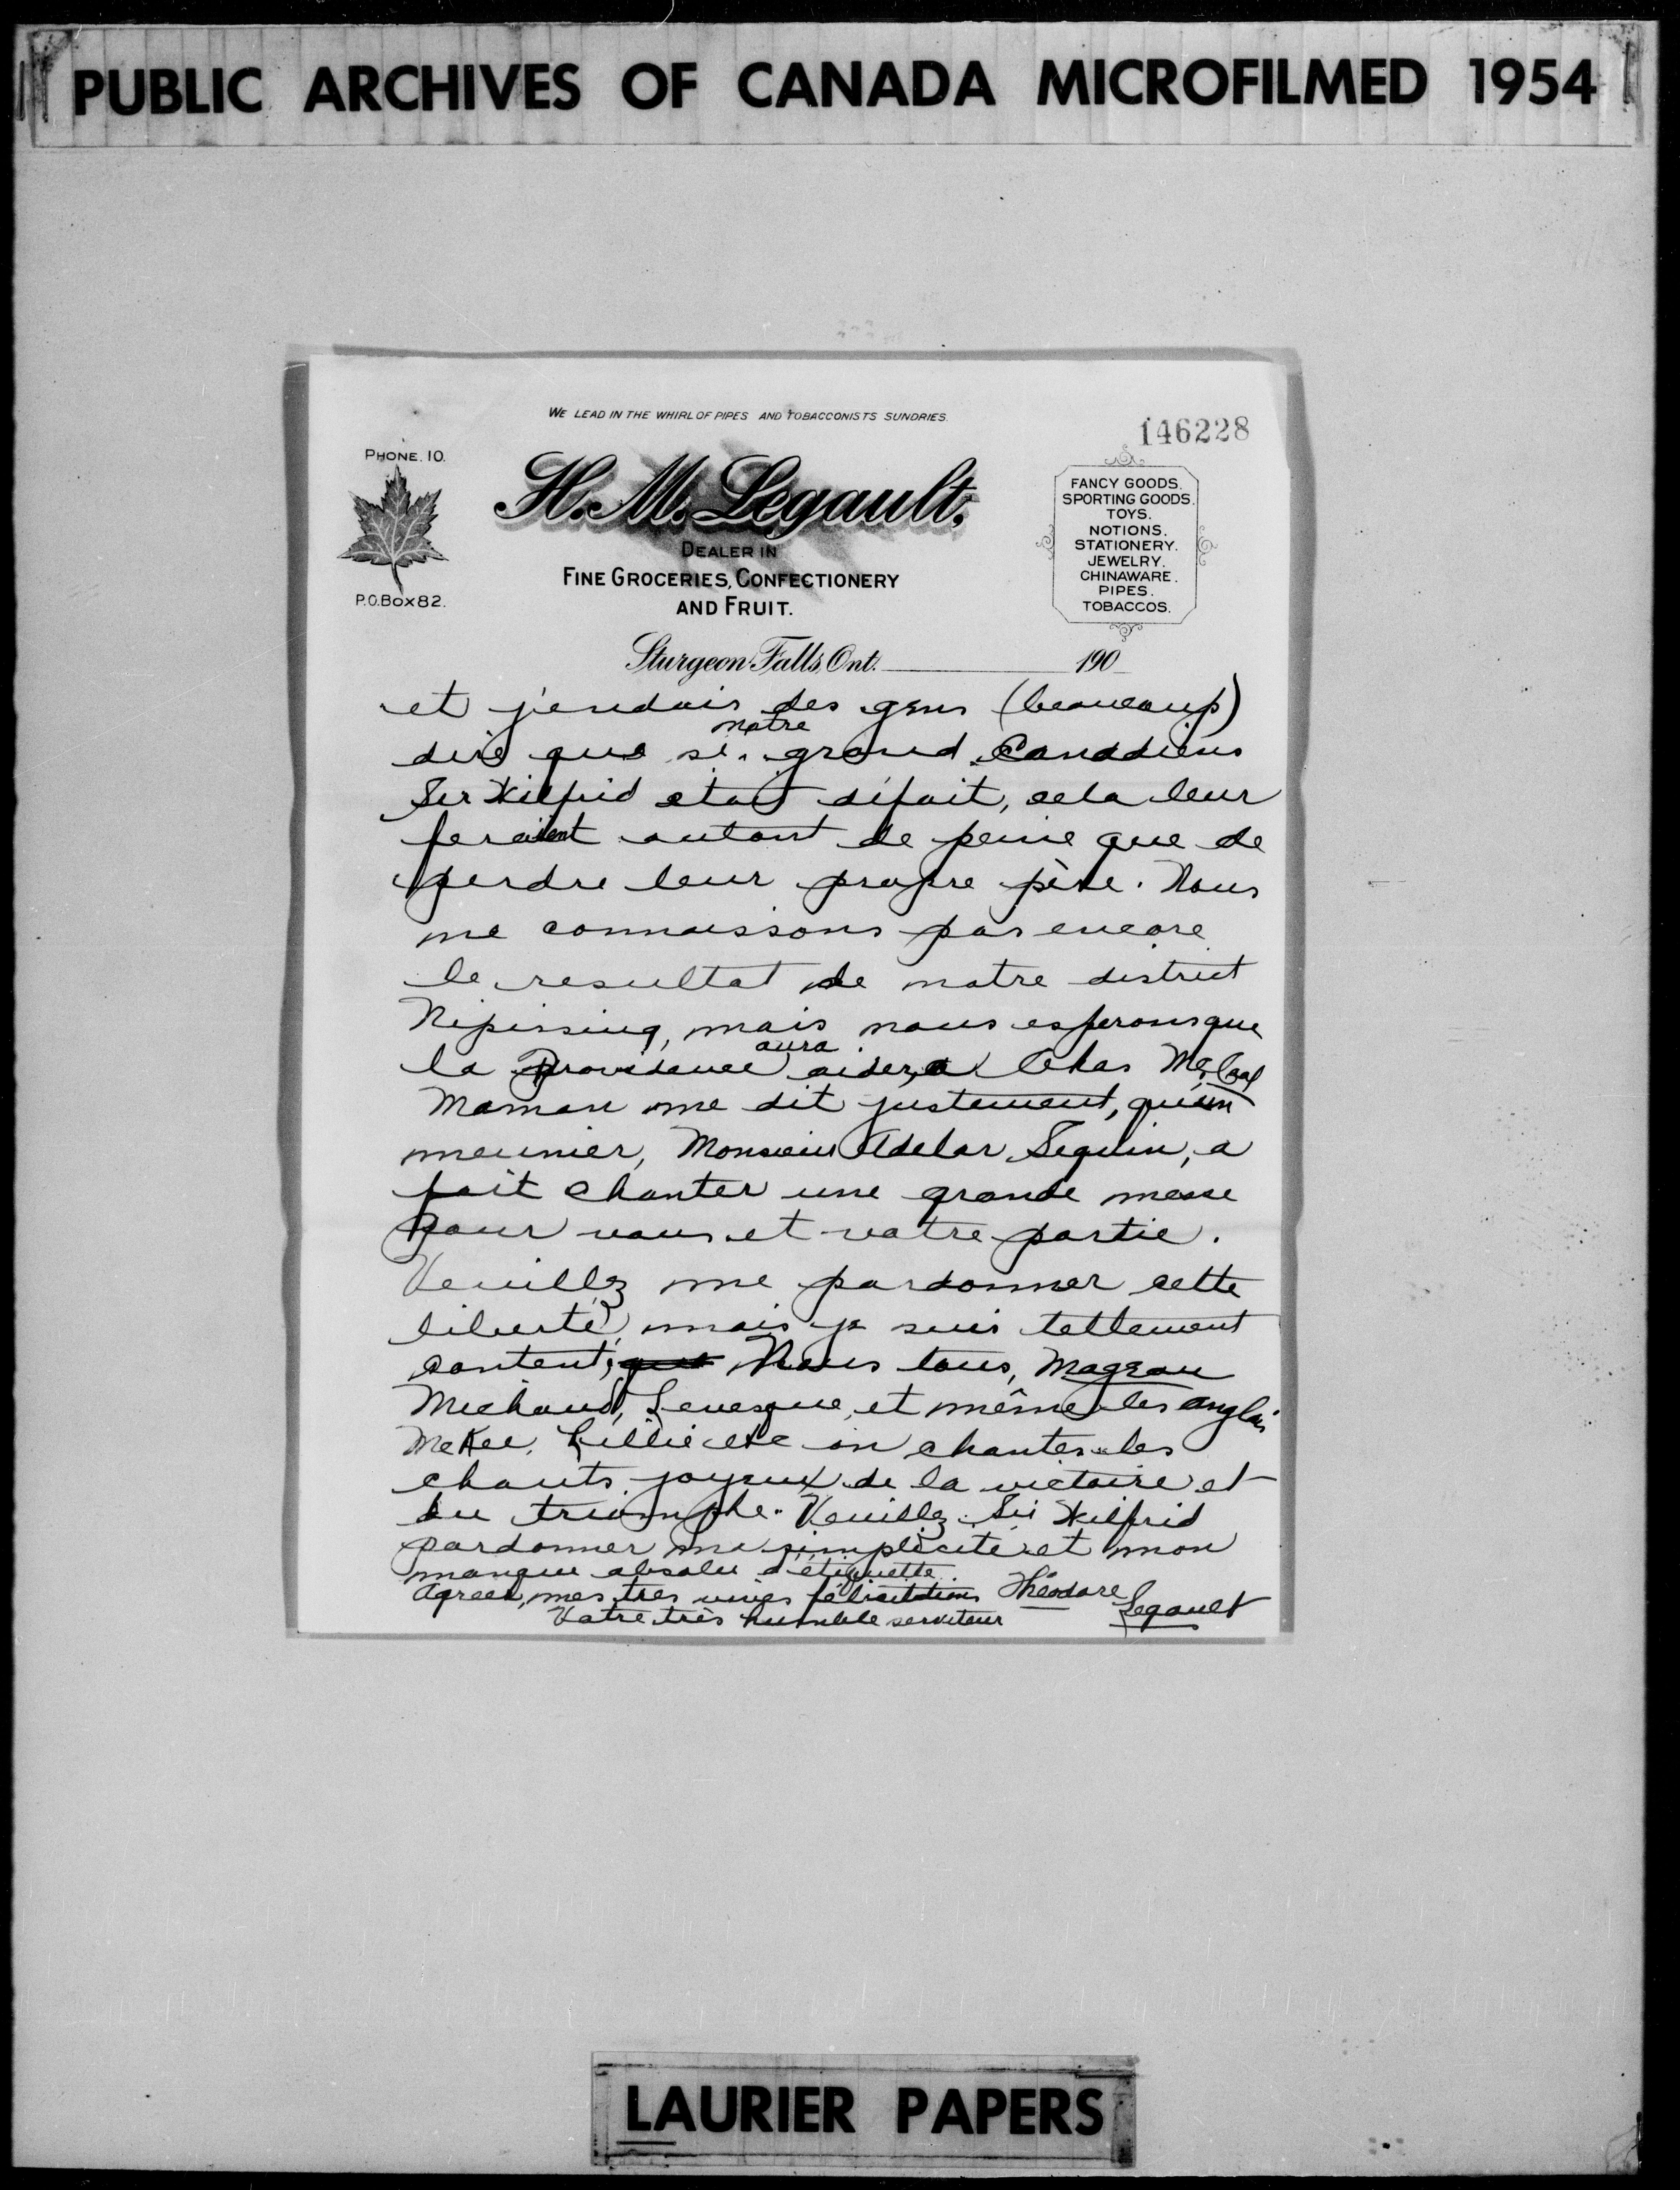 PUBLIC ARCHIVES OF CANADA MICROFILMED 1954
WE LEAD IN THE WHIRL OF PIPES AND TOBACCONISTS SUNDRIES.
146228
PHONE. 10.
H. M. Legault,
DEALER IN
FINE GROCERIES, CONFECTIONERY
AND FRUIT.
P.O. BOX 82.
FANCY GOODS.
SPORTING GOODS.
TOYS.
NOTIONS.
STATIONERY.
JEWELRY.
CHINAWARE.
PIPES.
TOBACCOS.
Sturgeon Falls, Ont. 190
et j'endais des gens (beaucoup)
notre
dire que si grand Canadiens
Sir Wilfrid etait défait, cela leur
feraient autant de peine que de
perdre leur propre père. Nous
ne connaissons pas encore
le resultat de notre district
Nipissing, mais nous esperons que
aura
la Providence aider a Chas McCool
Maman me dit justement, qu'un
meunier, Monsieur Adelar Seguin, a
fait chanter une grande messe
pour vous et votre partie.
Veuillez me pardonner cette
liberté, mais je suis tellement
content, que Nous tous, Mageau
Michaud, Levesque, et même les anglais
McKee, Lillie etc on chanter les
chants joyeux de la victoire et
du triomphe. Veuillez Sir Wilfrid
pardonner ma simplicité et mon
manque absolu d'étiquette.
Agreer, mes tres vives félicitations Théodore
Legault
Votre très humble serviteur
LAURIER PAPERS